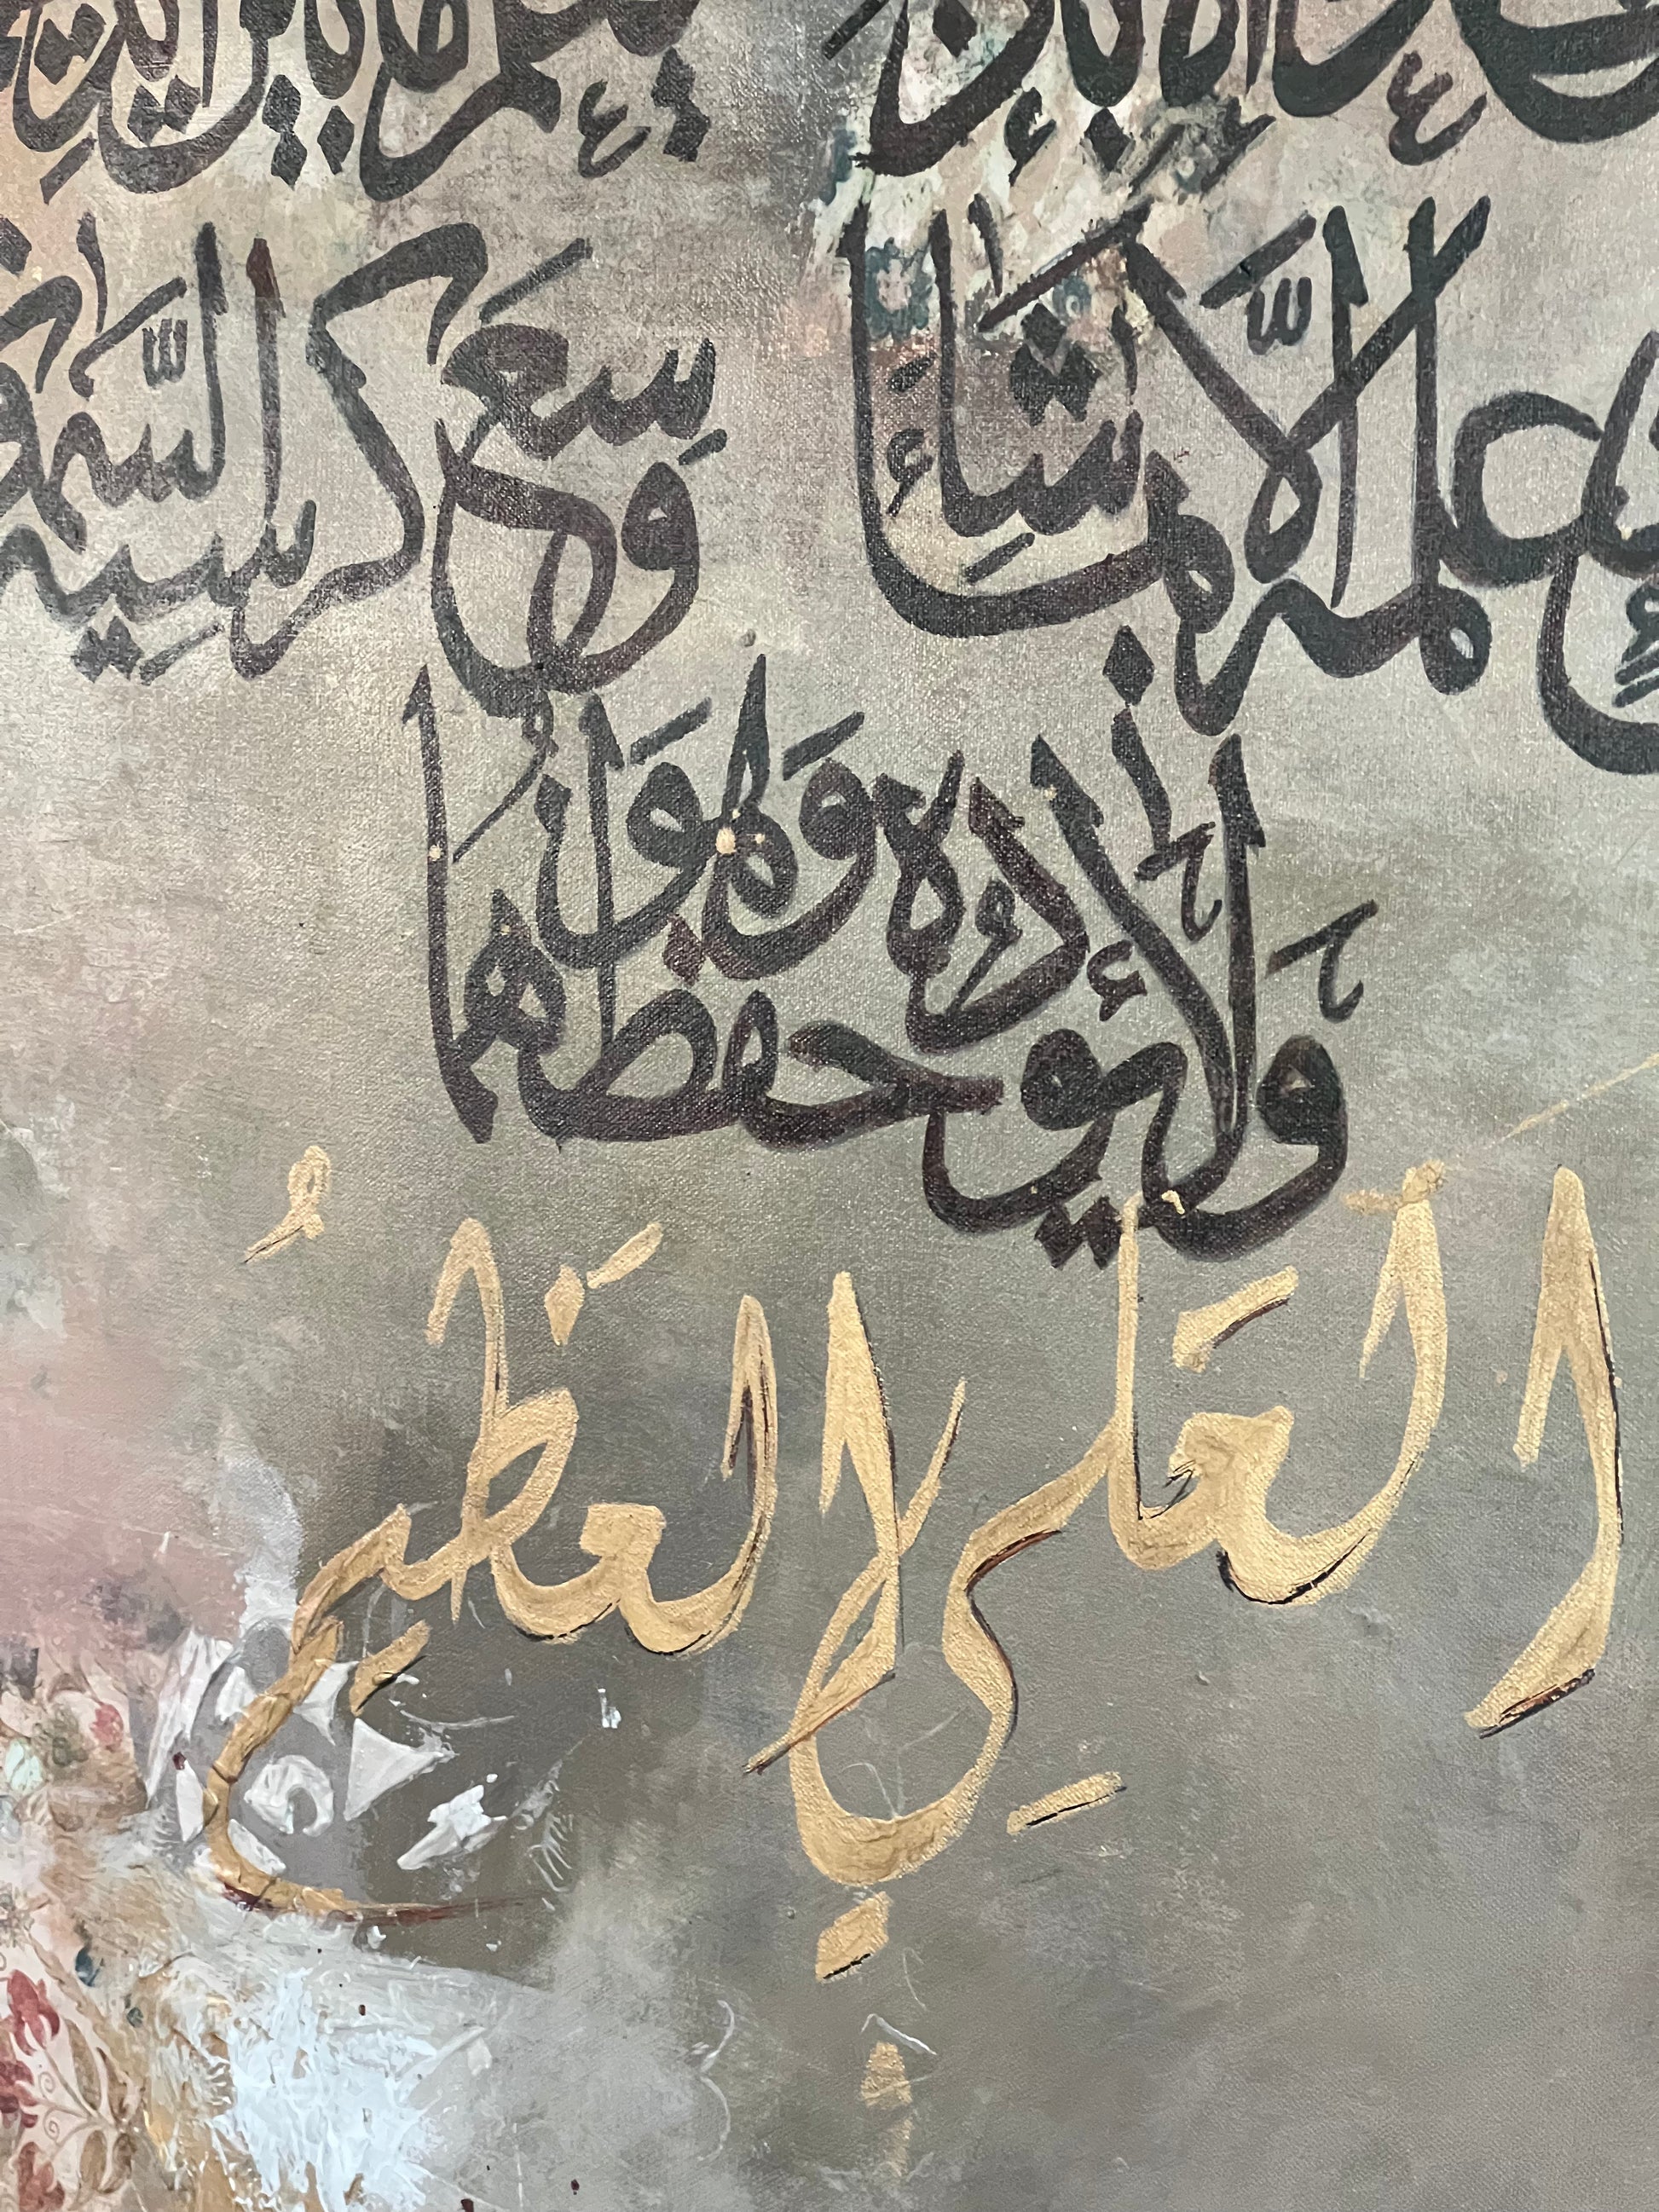 إلا بإذنه يعلم ما بين
علمه إلّا بما شَاءَ وَسِعَ كرسيه السّمٰو
وَلَا يئوده حفظهما وَهوَ
العَلِي العَظيمُ